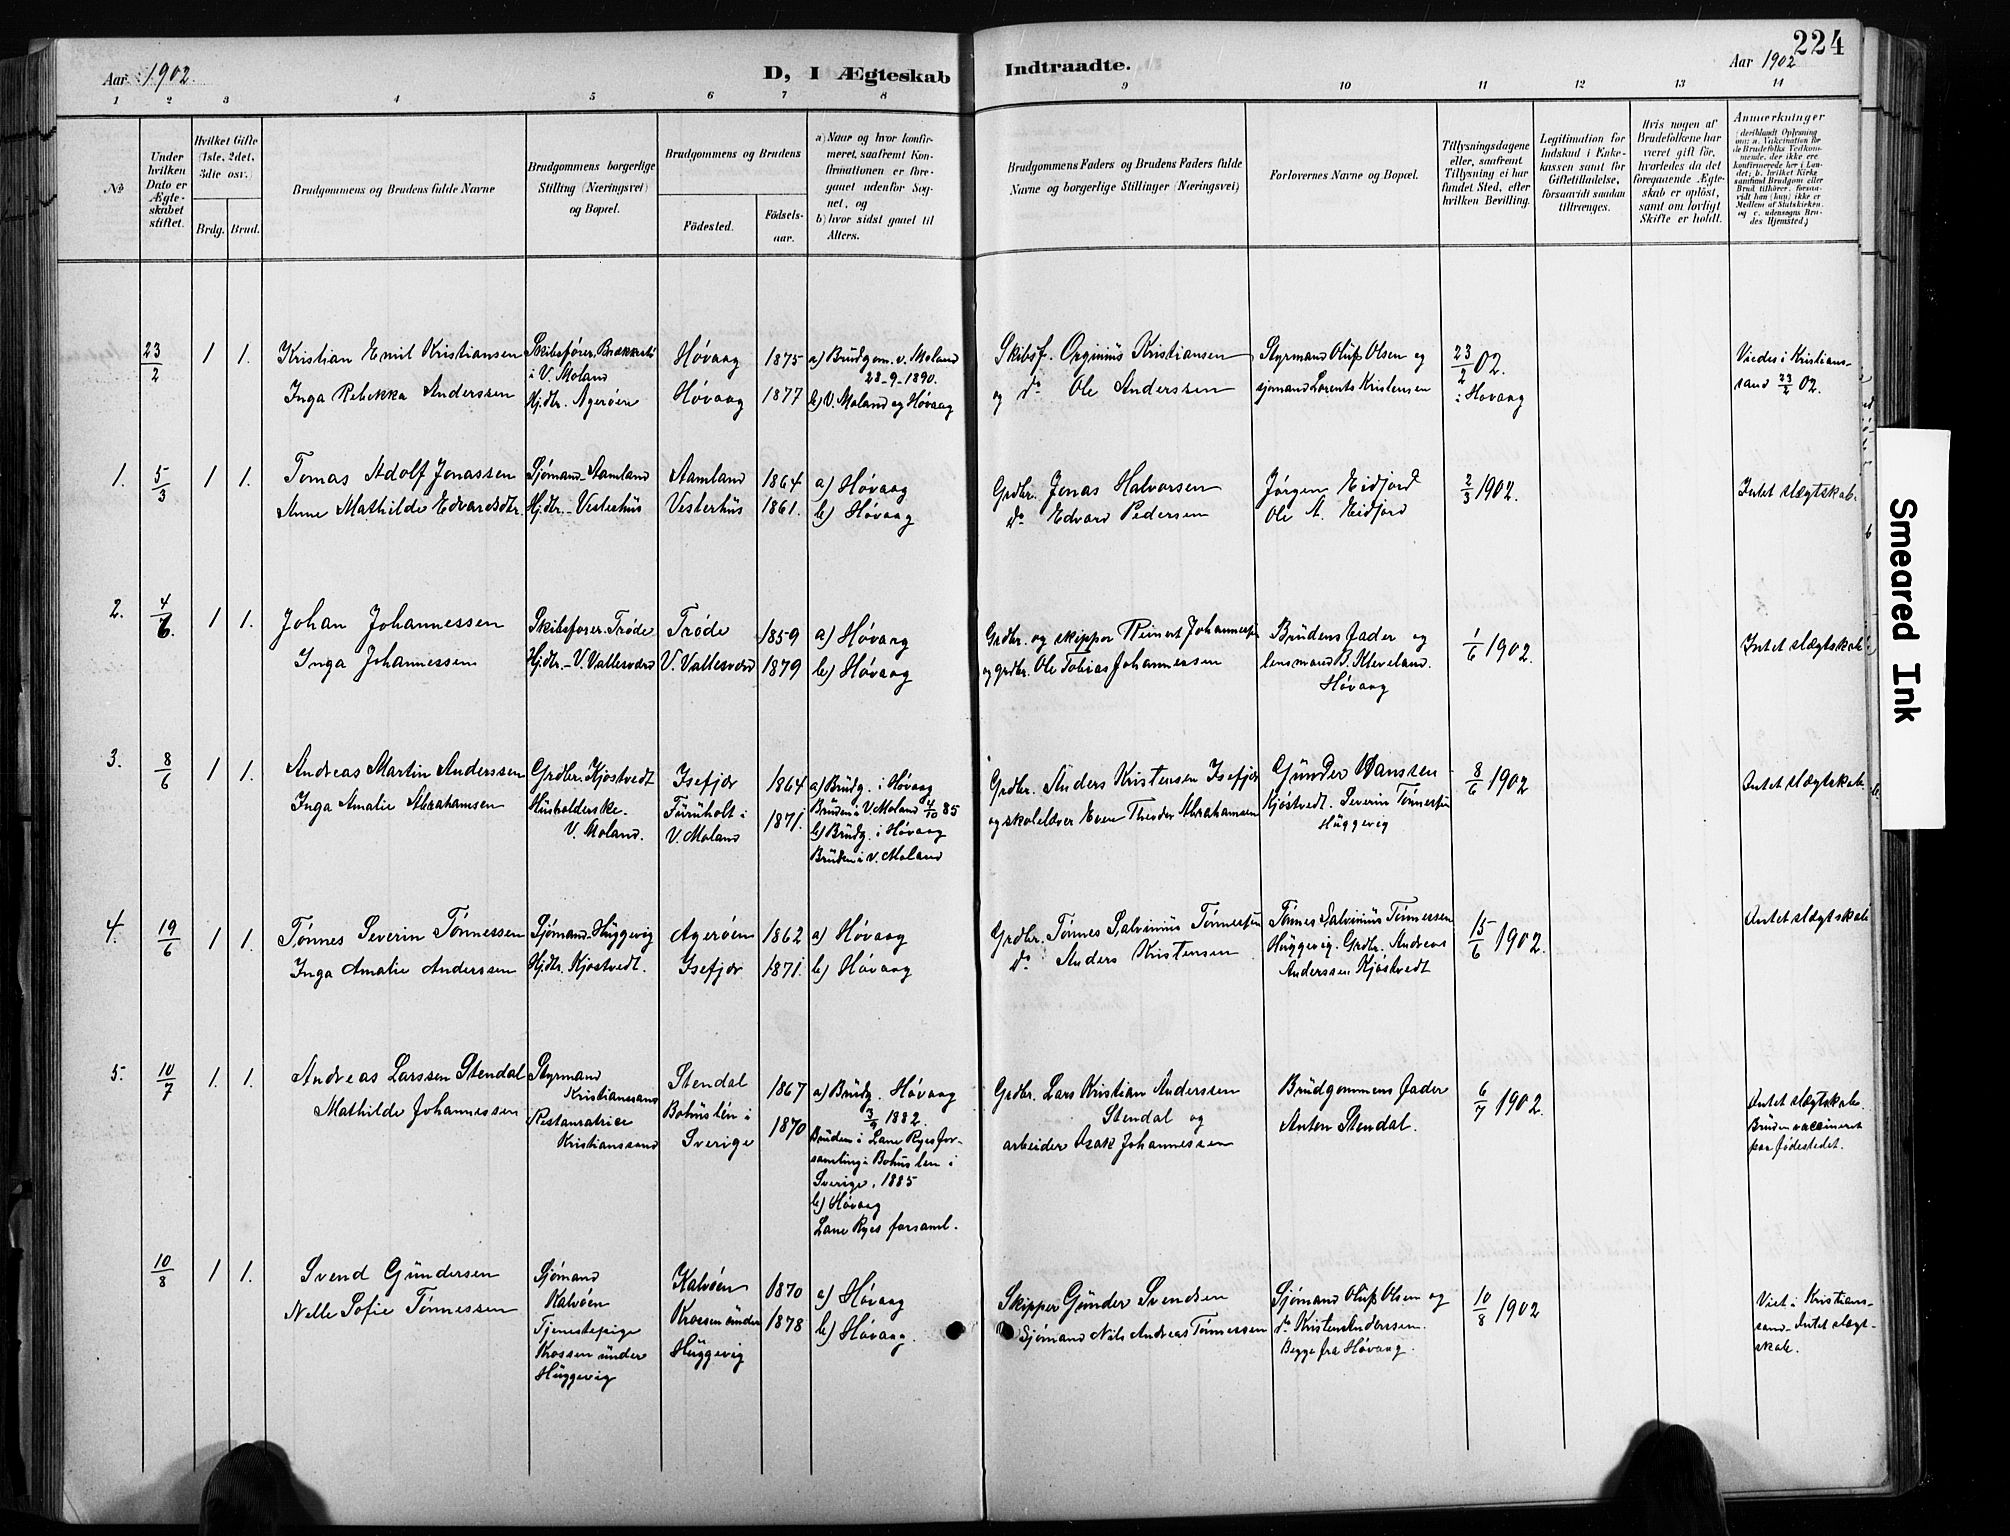 224
Aar 1902.
D, I Ægteskab Indtraadte.
Aar 1902
1 2 3 4 5 6 7 8 9 10 11 12 13 14
No
Under hvilken Dato er Ægteskabet stiftet.
Hvilket Gifte (1ste, 2det, 3die osv.)
Brdg. Brud.
Brudgommens og Brudens fulde Navne
Brudgommens borgerlige Stilling (Næringsvei) og Bopæl.
Brudgommens og Brudens
Födested.
Födselsaar.
a) Naar og hvor konfirmeret, saafremt Konfirmationen er foregaaet udenfor Sognet, og
b) hvor sidst gaaet til Alters.
Brudgommens Faders og Brudens Faders fulde Navne og borgerlige Stillinger (Næringsvei)
Forlovernes Navne og Bopæl.
Tillysningsdagene eller, saafremt Tillysning ei har fundet Sted, efter hvilken Bevilling.
Legitimation for Indskud i Enkekassen samt for Giftetilladelse, forsaavidt saadan tiltrænges.
Hvis nogen af Brudefolkene har været gift för, hvorledes da det foregaaende Ægteskab er oplöst, samt om lovligt Skifte er holdt.
Anmerkninger
23/2 1 1.
Kristian Emil Kristiansen
Inga Rebekka Anderssen
Skibsfører. Brækkestö
i V. Moland
Hjdtr. Agerøen
Høvaag 1875
Høvaag 1877
a) Brudgom. v. Moland
28-9-1890.
b) V. Moland og Høvaag
Skibsf. Orginius Kristiansen
og do Ole Anderssen
Styrmand Oluf Olsen og
sjömand Lorents Kristensen
23/2 02.
i Høvaag
Viedes i Kristians-
sand 23/2 02.
1. 5/3 1 1.
Tomas Adolf Jonassen
Anne Mathilde Edvardsdtr.
Sjömand. Aamland
Hjdtr. Vesterhus
Aamland 1864
Vesterhus 1861.
a) Høvaag
b) Høvaag
Grdbr. Jonas Halvorsen
do Edvard Pedersen
Jørgen Eidjord
Ole A. Eidjord
2/3 1902.
Intet slægtskab.
2. 4/6. 1 1.
Johan Johannessen
Inga Johannessen
Skibsfører. Trøde
Hjdtr. V. Vallesværd
Trøde 1859
V. Vallesværd 1879
a) Høvaag
b) Høvaag
Grdbr. og skipper Reinert Johannessen
og grdbr. Ole Tobias Johannessen
Brudens fader og
lensmand B. Kleveland.
Høvaag
1/6 1902.
Intet slægtskab.
3. 8/6 1 1.
Andreas Martin Anderssen
Inga Amalie Abrahamsen
Grdbr. Kjøstvedt
Husholderske.
V. Moland.
Isefjær 1864
Furuholt i
V. Moland 1871.
a) Brudg. i Høvaag
Bruden i V. Moland 4/10 85
b) Brudg. i Høvaag
Bruden i v. Moland
Grdbr. Anders Kristensen Isefjær
og skolelærer Even Theodor Abrahamsen
Gunder Hanssen
Kjøstvedt. Severin Tønnessen
Huggevig
8/6 1902
Intet slægtskab.
4. 19/6 1 1.
Tønnes Severin Tønnessen
Inga Amalie Anderssen
Sjömand. Huggevig
Hjdtr. Kjøstvedt.
Agerøen 1862
Isefjær 1871.
a) Høvaag
b) Høvaag
Grdbr. Tønnes Salvinius Tønnessen
do Anders Kristensen
Tønnes Salvinius Tønnessen
Huggevig. Grdbr. Andreas
Anderssen Kjøstvedt
15/6 1902.
Intet slægtskab
5. 10/7 1. 1.
Andreas Larssen Stendal
Mathilde Johannessen
Styrmand
Kristianssand
Restauratrice
Kristianssand
Stendal 1867
Bohuslén i
Sverige 1870
a) Brudg. Høvaag
3/9 1882.
Bruden i Lane Ryes for-
samling i Bohuslen i
Sverige, 1885
b) Høvaag
Lane Ryes forsaml.
Grdbr. Lars Kristian Anderssen
Stendal og
arbeider Isak Johannessen
Brudgommens fader
Anton Stendal.
6/7 1902.
Intet slægtskab.
Bruden vaccineret
paa fødestedet.
10/8 1 1.
Svend Gundersen
Nelle Sofie Tønnessen
Sjömand
Kalvöen
Tjenestepige
Krossen under
Huggevig
Kalvöen 1870
Krossen under
Huggevig 1878
a) Høvaag
b) Høvaag.
Skipper Gunder Svendsen
Sjömand Nils Andreas Tønnessen
Sjömand Oluf Olsen og
do Kristen Anderssen.
Begge fra Høvaag.
10/8 1902
Viet i Kristians-
sand. Intet slægt-
skab.
Smeared Ink